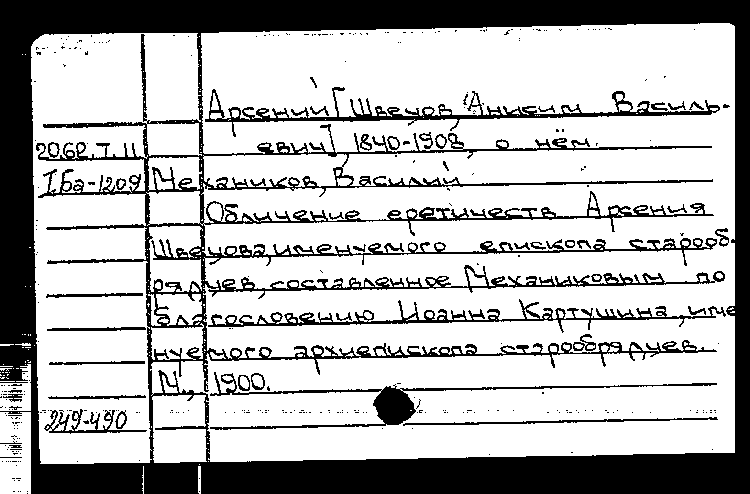 Арсений [Швецов, Анисим Василь-
евич], 1840-1908, о нём.
2062.I.11
I.Ба-1209 Механиков, Василий
Обличение еретичеств Арсения
Швецова, именуемого епископа старооб-
рядцев, составленное Механиковым по
благословению Иоанна Картушина, име
нуемого архиепископа старообрядцев.
М., 1900.
249-490